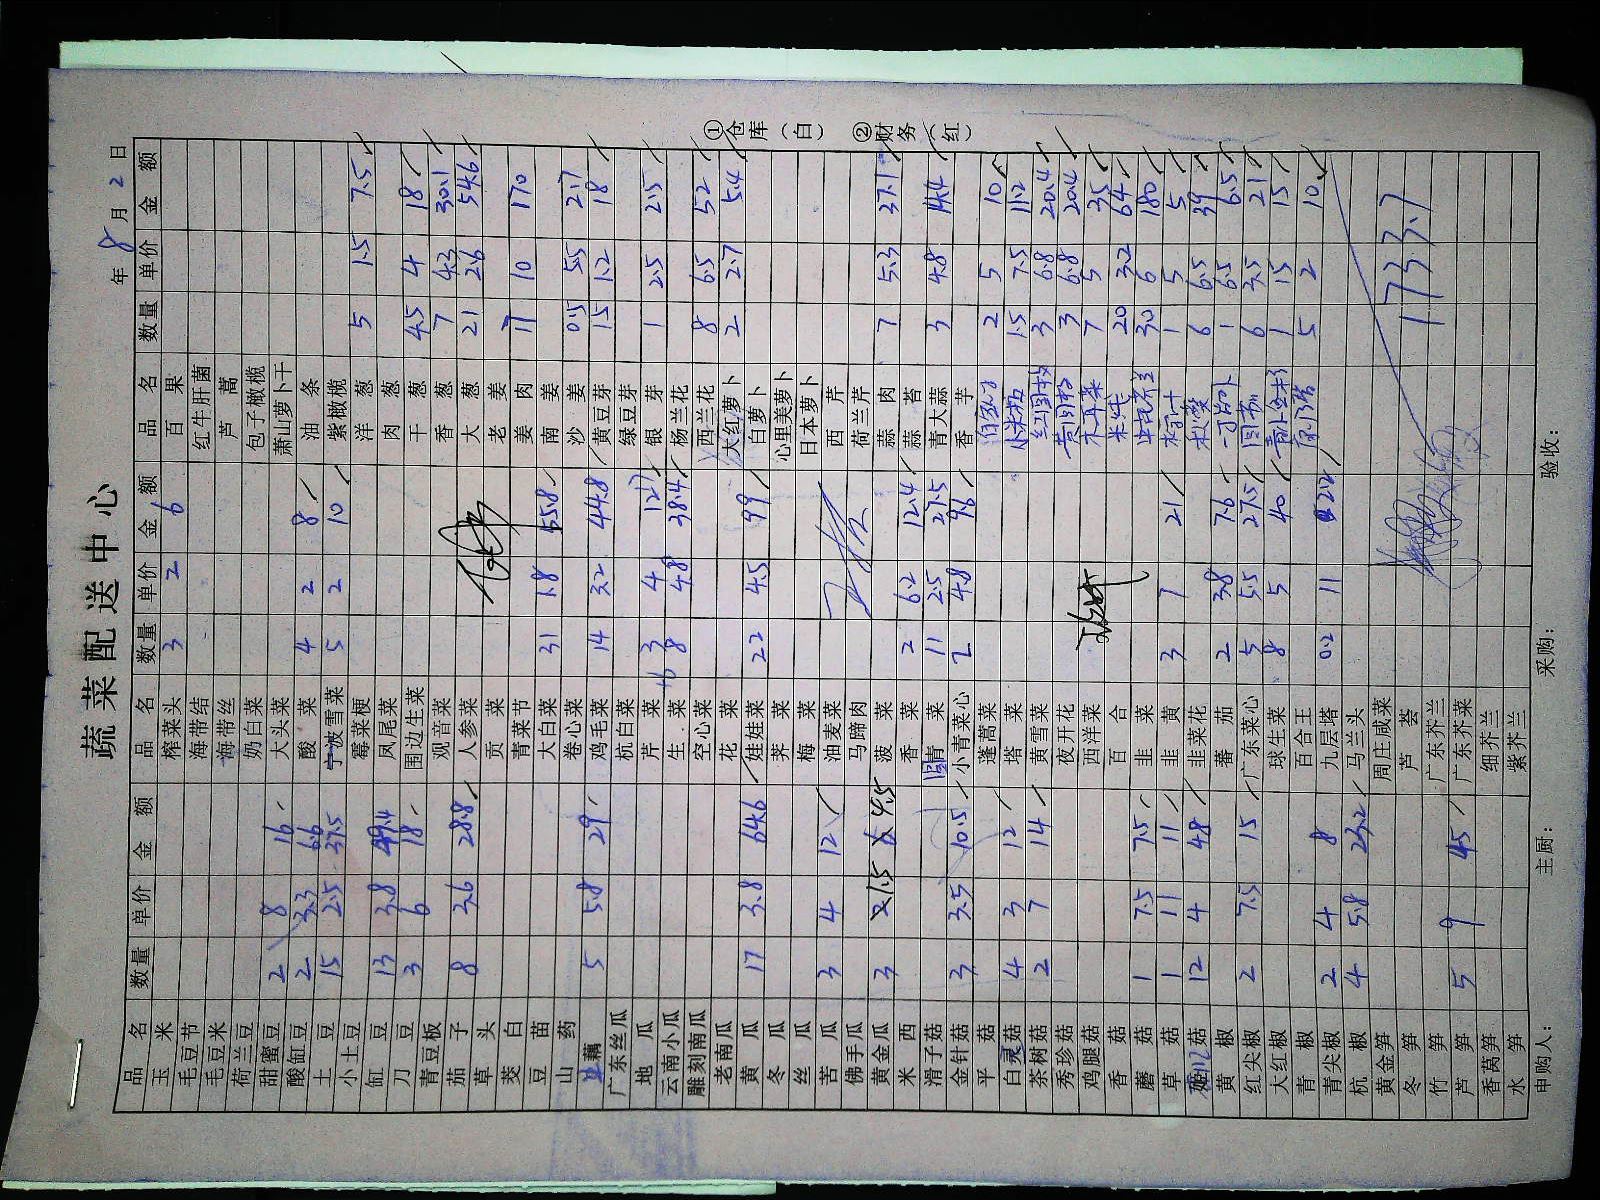 蔬菜配送中心
年 8 月 2 日
品名 数量 单价 金额 品名 数量 单价 金额 品名 数量 单价 金额
玉米 榨菜头 3 2 6 百果
毛豆节 海带结 红牛肝菌
毛豆米 海带丝 芦蒿
荷兰豆 奶白菜 包子橄榄
甜蜜豆 2 8 16 大头菜 萧山萝卜干
酸缸豆 2 3.3 6.6 酸菜 4 2 8 油条
土豆 15 2.5 37.5 宁波雪菜 5 2 10 紫橄榄
小土豆 霉菜梗 洋葱 5 1.5 7.5
缸豆 13 3.8 49.4 凤尾菜 肉葱
刀豆 3 6 18 围边生菜 干葱 4.5 4 18
青豆板 观音菜 香葱 7 4.3 30.1
茄子 8 3.6 28.8 人参菜 大葱 21 2.6 54.6
草头 贡菜 老姜
茭白 青菜节 姜肉 17 10 170
豆苗 大白菜 31 1.8 55.8 南姜
山药 卷心菜 沙姜 0.5 5.5 2.7
藕 5 5.8 29 鸡毛菜 14 3.2 44.8 黄豆芽 15 1.2 18
广东丝瓜 杭白菜 绿豆芽
地瓜 芹菜 3 4 12 银芽 1 2.5 2.5
云南小瓜 生菜 8 4.8 38.4 杨兰花
雕刻南瓜 空心菜 西兰花 8 6.5 52
老南瓜 花菜 大红萝卜 2 2.7 5.4
黄瓜 17 3.8 64.6 娃娃菜 22 4.5 99 白萝卜
冬瓜 荠菜 心里美萝卜
丝瓜 梅菜 日本萝卜
苦瓜 3 4 12 油麦菜 西芹
佛手瓜 马蹄肉 荷兰芹
黄金瓜 3 1.5 4.5 菠菜 蒜肉 7 5.3 37.1
米西 香菜 2 6.2 12.4 蒜苔
滑子菇 青菜 11 2.5 27.5 青大蒜 3 4.8 14.4
金针菇 3 3.5 10.5 小青菜心 2 4.8 9.6 香芋
平菇 蓬蒿菜 2 5 10
白灵菇 4 3 12 塔菜 小米椒 1.5 7.5 11.2
茶树菇 2 7 14 黄雪菜 红圆椒 3 6.8 20.4
秀珍菇 夜开花 黄圆椒 3 6.8 20.4
鸡腿菇 西洋菜 木耳菜 7 5 35
香菇 百合 20 3.2 64
蘑菇 1 7.5 7.5 韭菜 30 6 180
草菇 1 11 11 韭黄 3 7 21 1 5 5
菇 12 4 48 韭菜花 秋葵 6 6.5 39
黄椒 蕃茄 2 3.8 7.6 1 6.5 6.5
红尖椒 2 7.5 15 广东菜心 5 5.5 27.5 圆茄 6 3.5 21
大红椒 球生菜 8 5 40 1 15 15
青椒 百合王 5 2 10
青尖椒 2 4 8 九层塔 0.2 11 2.2
杭椒 4 5.8 23.2 马兰头
黄金笋 周庄咸菜
冬笋 芦荟 1733.7
竹笋 广东芥兰
芦笋 5 9 45 广东芥菜
香莴笋 细芥兰
水笋 紫芥兰
申购人： 主厨： 采购： 验收：
①仓库（白） ②财务（红）